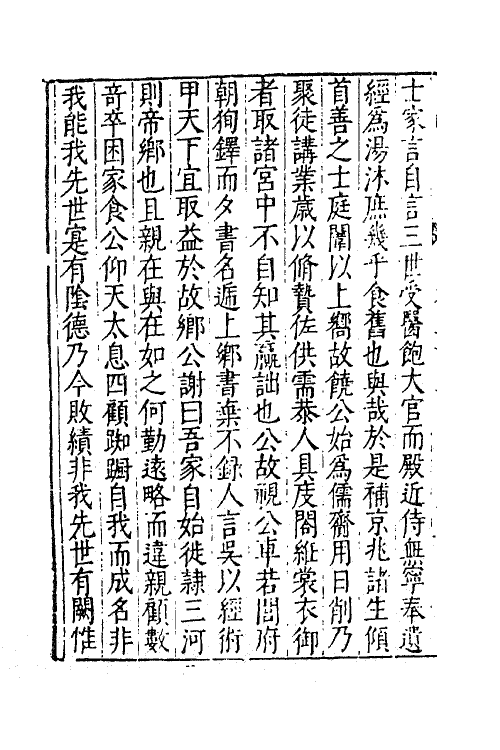 士家言自言三世受醫飽大官而殿近侍無寧奉遺
經為湯沐庶幾乎食舊也與哉於是補京兆諸生傾
首善之士庭闈以上嚮故饒公始為儒齋用日削乃
聚徒講業歲以脩贄佐供需恭人具庋閣紝裳衣御
者取諸宮中不自知其羸詘也公故視公車若閭府
朝狥鐸而夕書名遞上鄉書棄不錄人言吳以經術
甲天下宜取益於故鄉公謝曰吾家自始徙隷三河
則帝鄉也且親在與在如之何勤遠略而違親顧數
奇卒困家食公仰天太息四顧踟躕自我而成名非
我能我先世寔有陰德乃今敗績非我先世有闕惟